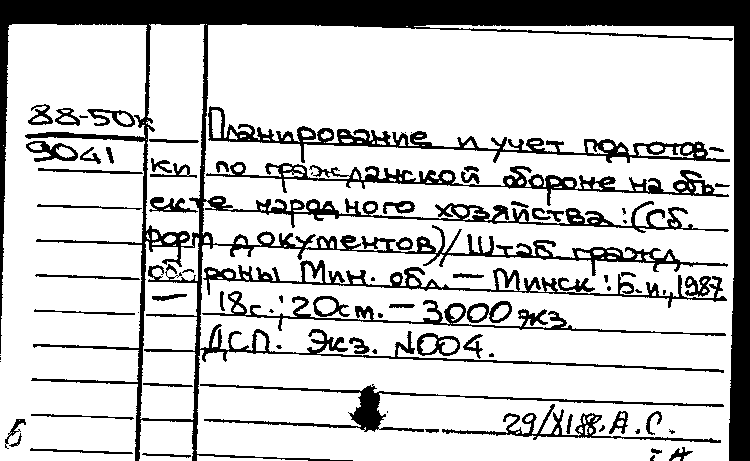 88-50к
9041
Планирование и учет подготов-
ки по гражданской обороне на объ-
екте народного хозяйства: (Сб.
форм документов)/Штаб гражд.
обороны Мин. обл. — Минск: Б.и., 1987
— 18с.; 20см. — 3000 экз.
ДСП. Экз. №004.
29/XI 88. А.С.
Б